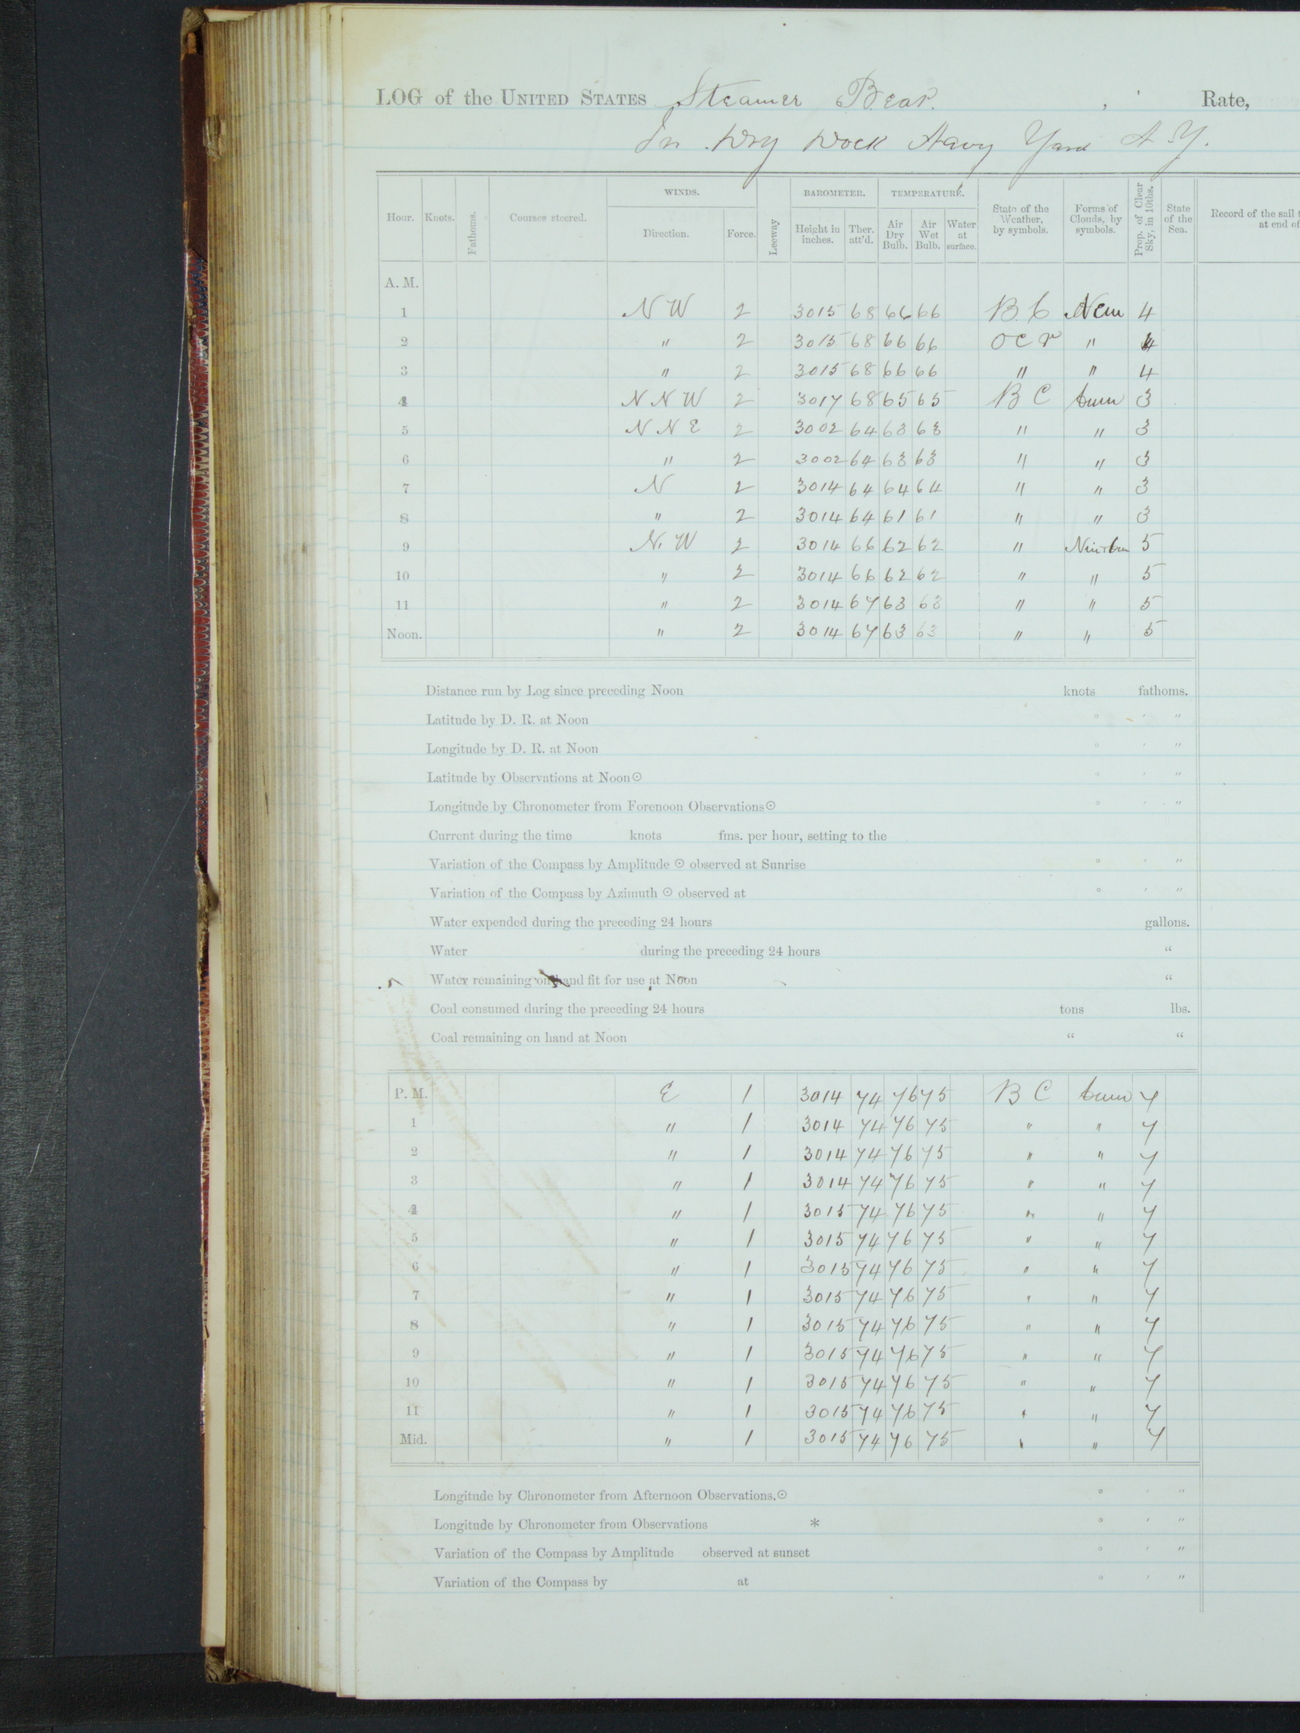 LOG of the UNITED STATES Steamer Bear. , Rate,
In Dry Dock Navy Yard N.Y.
WINDS. BAROMETER. TEMPERATURE.
Hour. Knots. Fathoms. Courses steered. Direction. Force. Leeway Height in inches. Ther. att'd. Air Dry Bulb. Air Wet Bulb. Water at surface. State of the Weather, by symbols. Forms of Clouds, by symbols. Prop. of Clear Sky, in 10ths. State of the Sea. Record of the sail at end of
A. M.
1 N W 2 3015 68 66 66 B C Nem 4
2 " 2 3015 68 66 66 O C R " 4
3 " 2 3015 68 66 66 " " 4
4 N N W 2 3017 68 65 65 B C Cum 3
5 N N E 2 3002 64 63 63 " " 3
6 " 2 3002 64 63 63 " " 3
7 N 2 3014 64 64 64 " " 3
8 " 2 3014 64 61 61 " " 3
9 N. W 2 3014 66 62 62 " 5
10 " 2 3014 66 62 62 " " 5
11 " 2 3014 67 63 63 " " 5
Noon. " 2 3014 67 63 63 " " 5
Distance run by Log since preceding Noon knots fathoms.
Latitude by D. R. at Noon ° ' "
Longitude by D. R. at Noon ° ' "
Latitude by Observations at Noon☉ ° ' "
Longitude by Chronometer from Forenoon Observations☉ ° ' "
Current during the time knots fms. per hour, setting to the
Variation of the Compass by Amplitude ☉ observed at Sunrise ° ' "
Variation of the Compass by Azimuth ☉ observed at ° ' "
Water expended during the preceding 24 hours gallons.
Water during the preceding 24 hours "
Water remaining on hand fit for use at Noon "
Coal consumed during the preceding 24 hours tons lbs.
Coal remaining on hand at Noon " "
P. M. E 1 3014 74 76 75 B C Cum 7
1 " 1 3014 74 76 75 " " 7
2 " 1 3014 74 76 75 " " 7
3 " 1 3014 74 76 75 " " 7
4 " 1 3015 74 76 75 " " 7
5 " 1 3015 74 76 75 " " 7
6 " 1 3015 74 76 75 " " 7
7 " 1 3015 74 76 75 " " 7
8 " 1 3015 74 76 75 " " 7
9 " 1 3015 74 76 75 " " 7
10 " 1 3015 74 76 75 " " 7
11 " 1 3015 74 76 75 " " 7
Mid. " 1 3015 74 76 75 " " 7
Longitude by Chronometer from Afternoon Observations.☉ ° ' "
Longitude by Chronometer from Observations * ° ' "
Variation of the Compass by Amplitude observed at sunset ° ' "
Variation of the Compass by at ° ' "